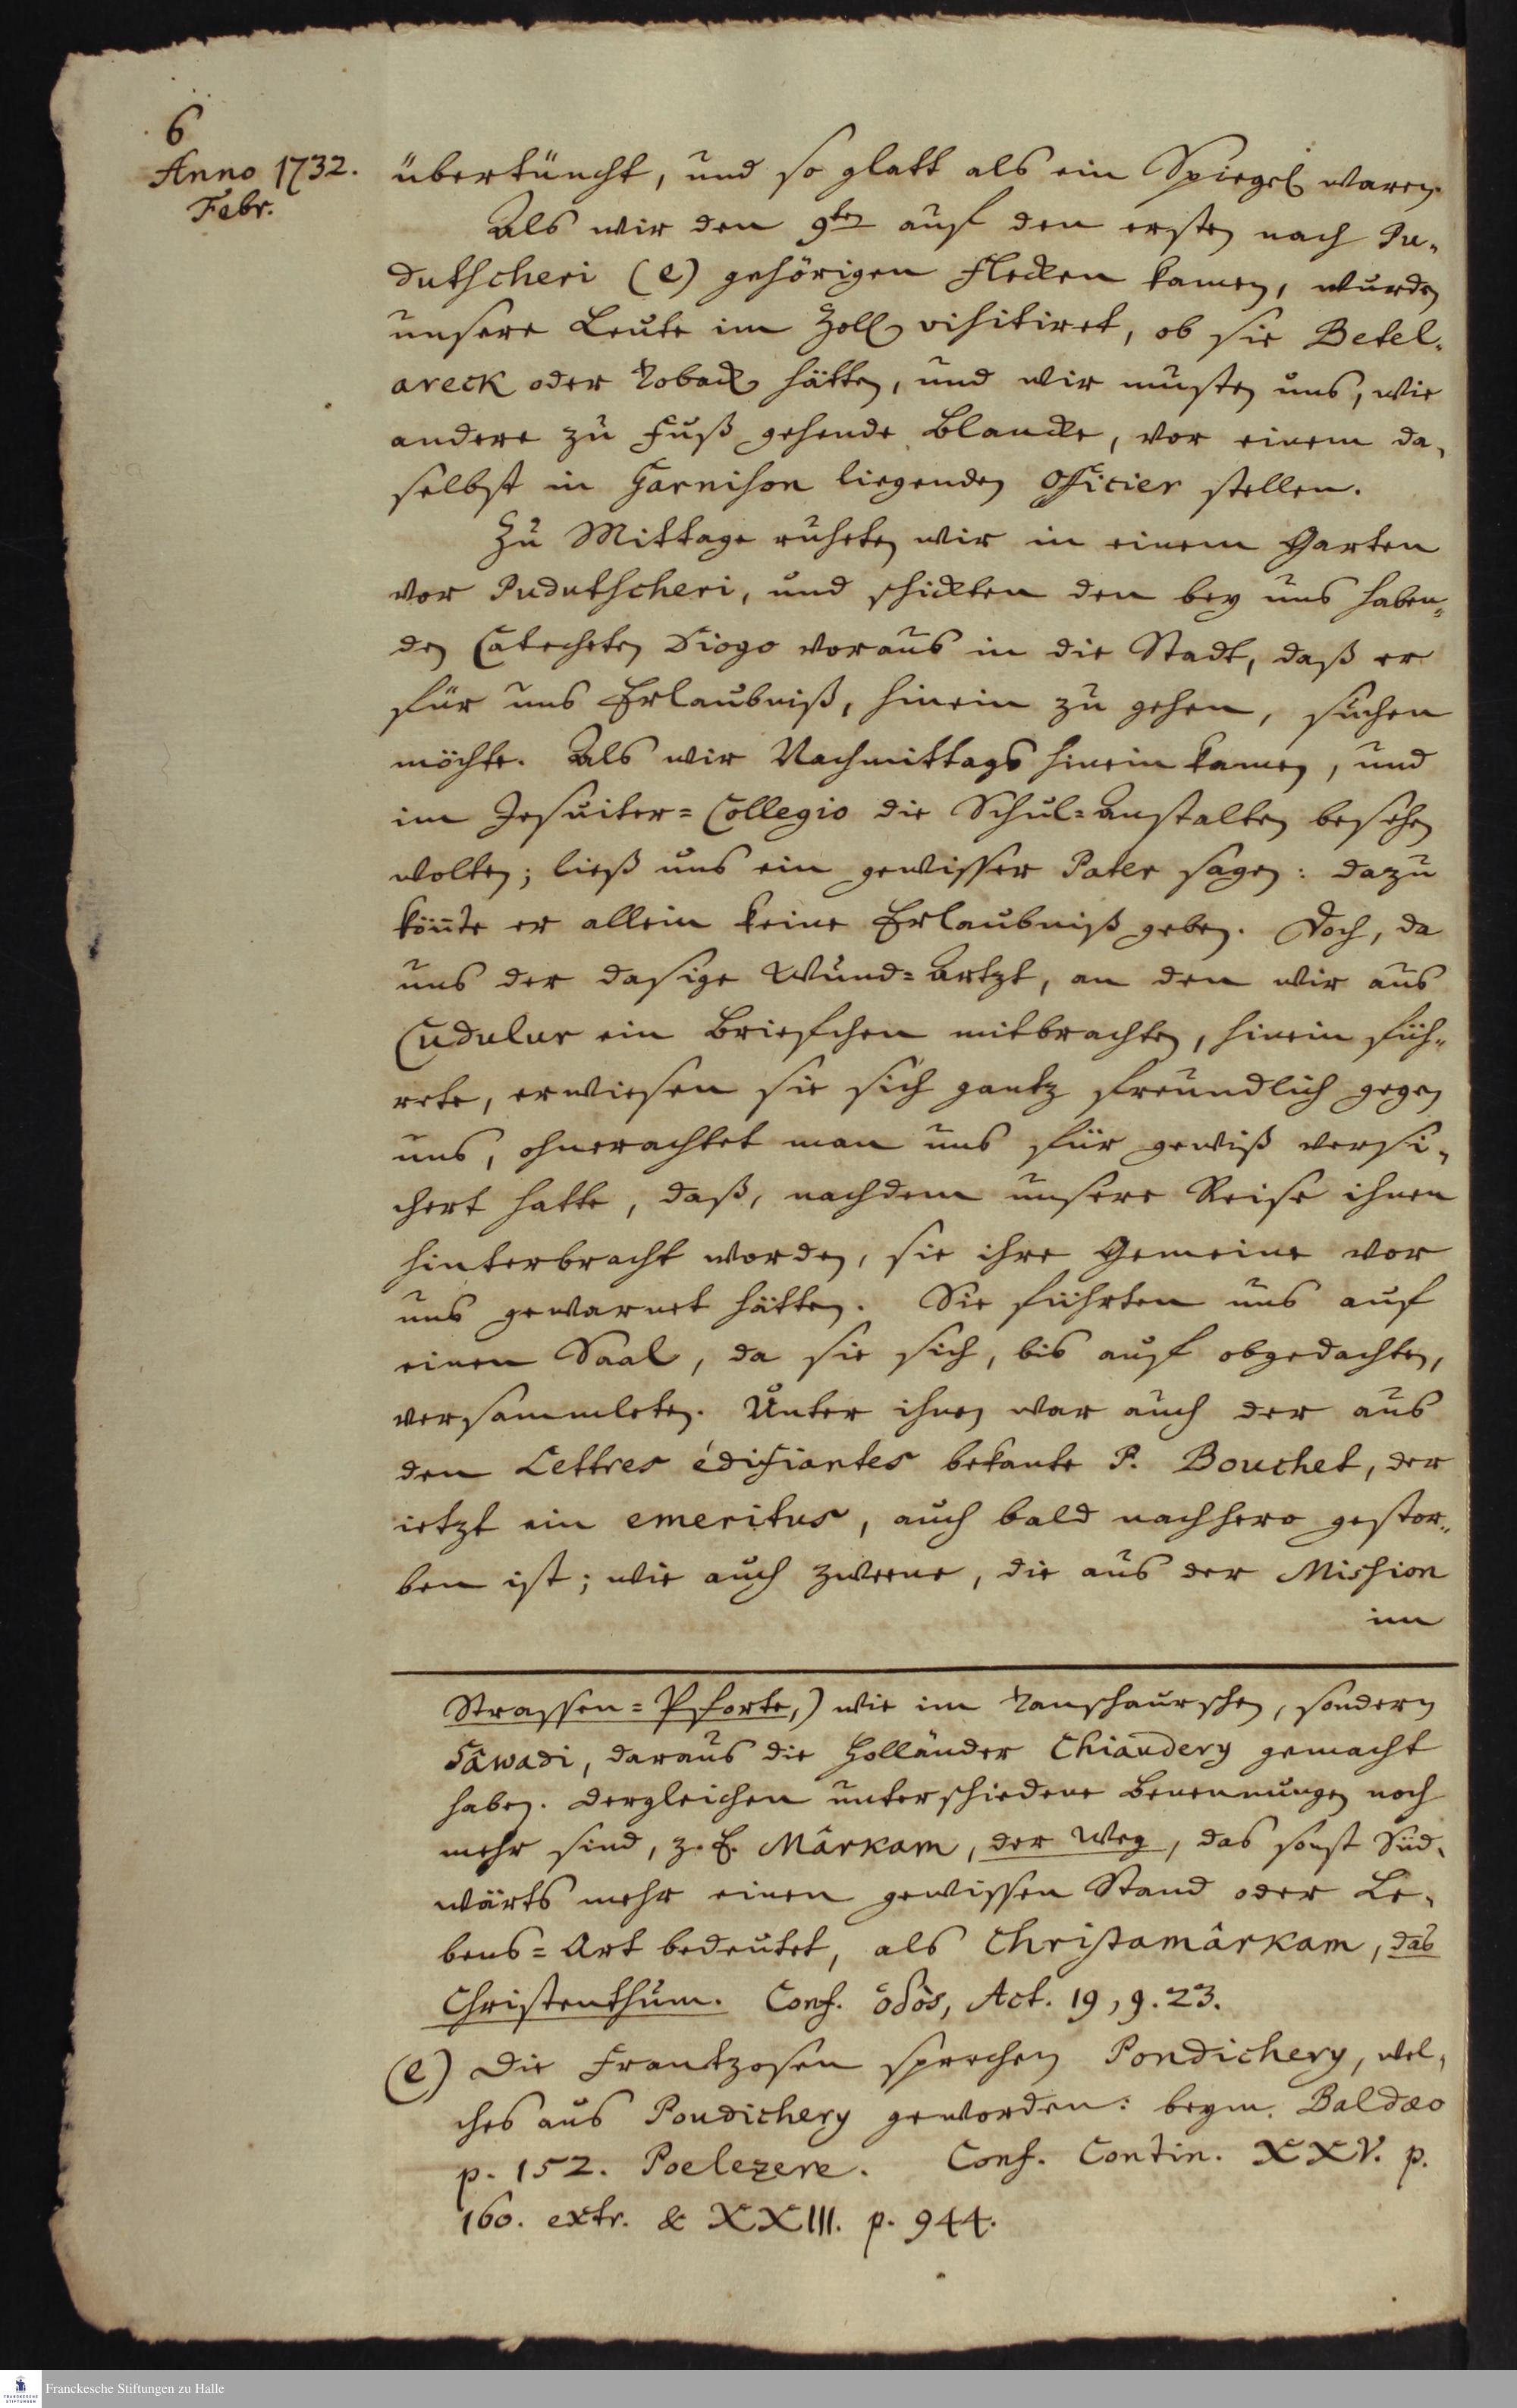 6
Anno 1732.
Febr.
übertüncht, und so glatt als ein Spiegel waren.
Als wir den 9ten auf den ersten nach Pu-
dutscheri (e) gehörigen Flecken kamen, wurden
unsere Leute im Zoll visitiret, ob sie Betel-
areck oder Toback hätten, und wir musten uns, wie
andere zu Fuß gehende Blancke, vor einem da-
selbst in Garnison liegenden Officier stellen.
Zu Mittage ruheten wir in einem Garten
vor Pudutscheri, und schickten den bey uns haben-
den Catecheten Diogo voraus in die Stadt, daß er
für uns Erlaubniß, hinein zu gehen, suchen
möchte. Als wir Nachmittags hinein kamen, und
im Jesuiter=Collegio die Schul=Anstalten besehen
wolten; ließ uns ein gewisser Pater sagen: dazu
kön̄te er allein keine Erlaubniß geben. Doch, da
uns der dasige Wund=Artzt, an den wir aus
Cudulur ein Briefchen mitbrachten, hinein füh-
rete, erwiesen sie sich gantz freundlich gegen
uns, ohnerachtet man uns für gewiß versi-
chert hatte, daß, nachdem unsere Reise ihnen
hinterbracht worden, sie ihre Gemeine vor
uns gewarnet hätten. Sie führten uns auf
einen Saal, da sie sich, bis auf obgedachten,
versammleten. Unter ihnen war auch der aus
den Lettres édifiantes bekante P. Bouchet, der
ietzt ein emeritus, auch bald nachhero gestor-
ben ist; wie auch zweene, die aus der Mission
im
Strassen=Pforte,) wie im Tanschaurschen, sondern
Sâwadi, daraus die Holländer Chiaudery gemacht
haben. Dergleichen unterschiedene Benennungen noch
mehr sind, z. E. Mârkam, der Weg, das sonst Süd-
wärts mehr einen gewissen Stand oder Le-
bens=Art bedeutet, als Christamârkam, das
Christenthum. Conf. ὁδὸς, Act. 19, 9. 23.
(e) Die Frantzosen sprechen Pondichery, wel-
ches aus Poudichery geworden: beym Baldæo
p. 152. Poelezere. Conf. Contin. XXV. p.
160. extr. & XXIII. p. 944.
Franckesche Stiftungen zu Halle